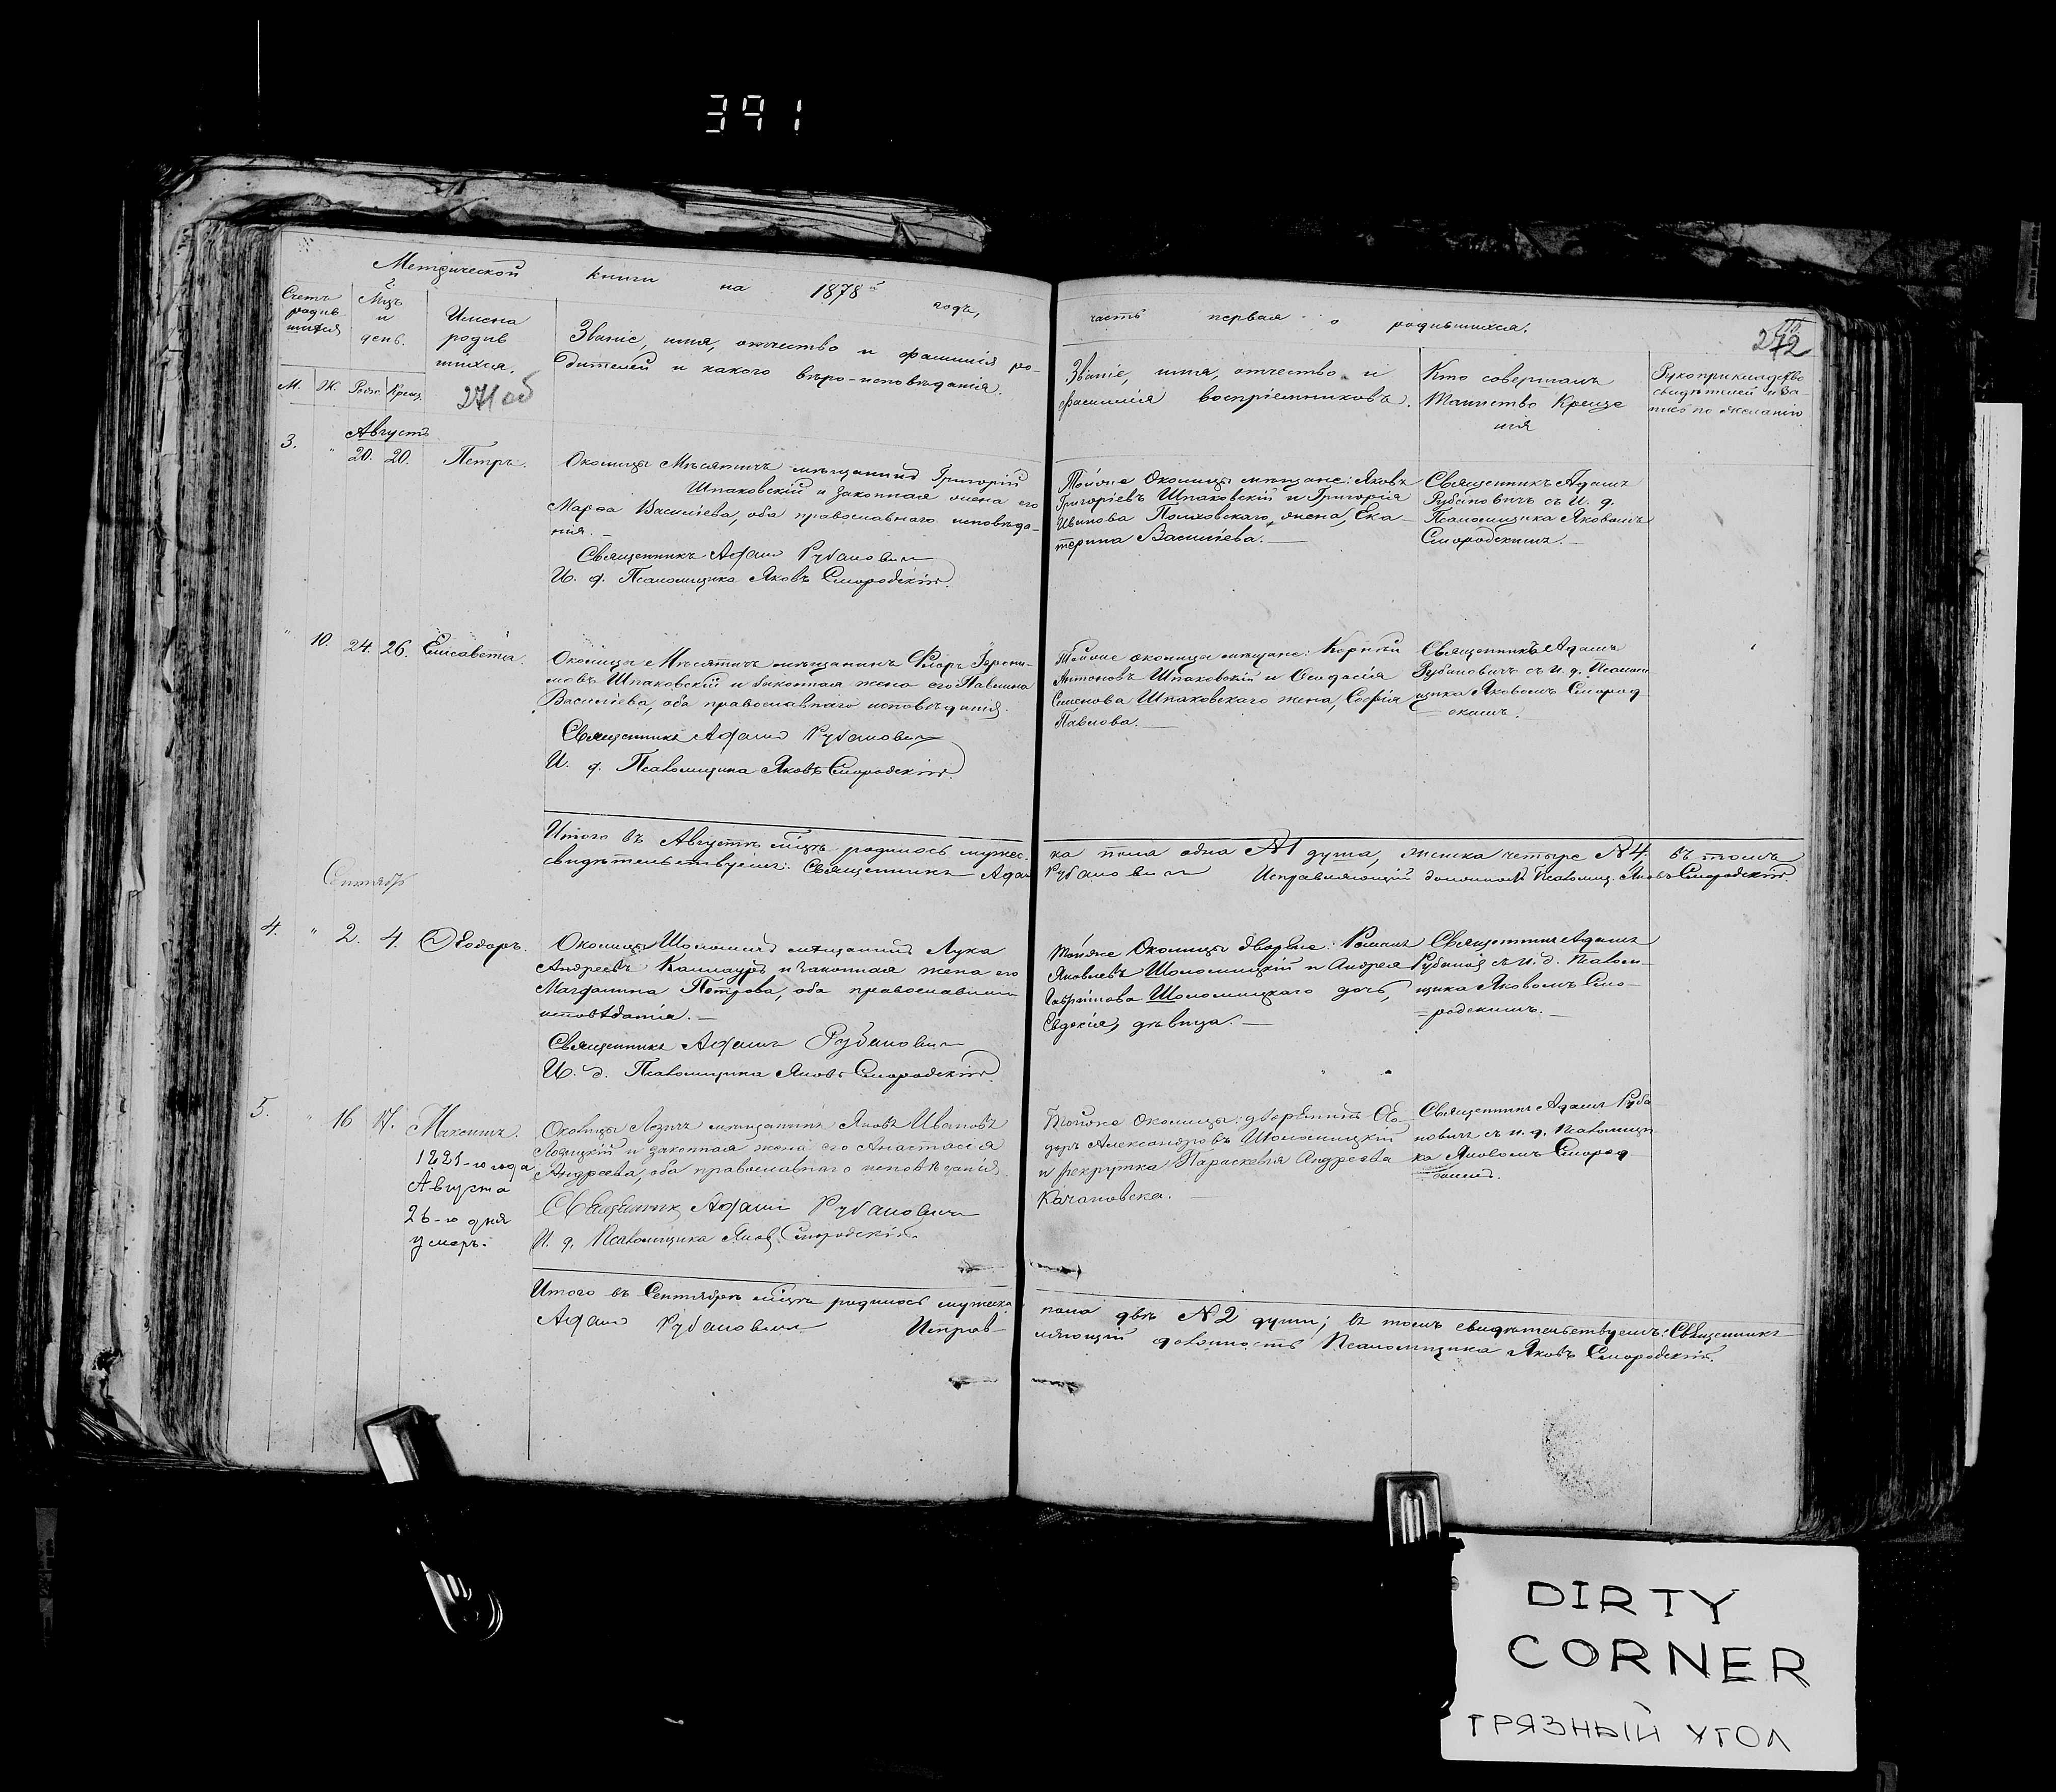 391
Метрической книги на 1878й годъ,
часть первая о родившихся.
272
Счетъ родив шихся
М.
Ж.
Мцъ и день.
Рожд.
Крещ.
Имена родив шихся.
271об
Званіе, имя, отчество и фамилія ро-
дителей и какого вѣро-исповѣданія.
Званіе, имя, отчество и
фамилія воспріемниковъ.
Кто совершалъ
Таинство Креще
нія
Рукоприкладство
свидѣтелей о за-
писѣ по желанію
Августъ
3. " 20. 20. Петръ.
Околицы Мѣсятичъ мѣщанинъ Григорій
Шпаковскій и законная жена его
Марѳа Василіева, оба православнаго исповѣда-
нія.
Священникъ Адамъ Рубановичъ
И. д. Псаломщика Яковъ Смородскій.
Тойже Околицы мѣщане: Яковъ
Григоріевъ Шпаковскій и Григорія
Иванова Полховскаго жена, Ека-
терина Василіева.
Священникъ Адамъ
Рубановичъ съ И. д.
Псаломщика Яковомъ
Смородскимъ.
" 10. 24. 26. Елисавета.
Околицы Мѣсятичъ мѣщанинъ Флоръ Герони-
мовъ Шпаковскій и законная жена его Павлина
Василіева, оба православнаго исповѣданія.
Священникъ Адамъ Рубановичъ
И. д. Псаломщика Яковъ Смородскій.
Тойже околицы мѣщане: Корнилій
Антоновъ Шпаковскій и Ѳеодосія
Семенова Шпаковскаго жена, Софія
Павлова.
Священникъ Адамъ
Рубановичъ съ и. д. Псалом-
щика Яковомъ Смород
скимъ.
Итого въ Августѣ мцѣ родилось мужес-
ка пола одна №1 душа, женска четыре №4. въ томъ
свидѣтельствуемъ: Священникъ Адам
Рубановичъ Исправляющій должность Псаломщ. Яковъ Смородскій.
Сентябрь
4. " 2. 4. Ѳеодоръ.
Околицы Шоломичъ мѣщанинъ Лука
Андреевъ Каллауръ и законная жена его
Магдалина Петрова, оба православнаго
исповѣданія.
Священникъ Адамъ Рубановичъ
И. д. Псаломщика Яковъ Смородскій.
Тойже Околицы дворяне: Романъ
Яковлевъ Шоломицкій и Андрея
Гавріилова Шоломицкаго дочь,
Евдокія, дѣвица.
Священникъ Адамъ
съ и. д. Псалом-
щика Яковомъ Смо-
родскимъ.
5. " 16 17. Максимъ.
1881-го года
Августа
26-го дня
умеръ.
Околицы Лозичъ мѣщанинъ Яковъ Ивановъ
Лозицкій и законная жена его Анастасія
Андреева, оба православнаго исповѣданія.
Священникъ Адамъ Рубановичъ
И. д. Псаломщика Яковъ Смородскій.
Тойже Околицы: дворянинъ Ѳео
доръ Александровъ Шоломицкій
и рекрутка Параскевія Андреева
Качановска.
Священникъ Адамъ Руба
новичъ съ и. д. Псаломщи-
ка Яковомъ Смород
скимъ.
Итого въ Сентябрѣ мцѣ родилось мужеска
пола двѣ №2 души; въ томъ свидѣтельствуемъ: Священникъ
Адамъ Рубановичъ Исправ-
ляющій должность Псаломщика Яковъ Смородскій.
DIRTY
CORNER
ГРЯЗНЫЙ УГОЛ